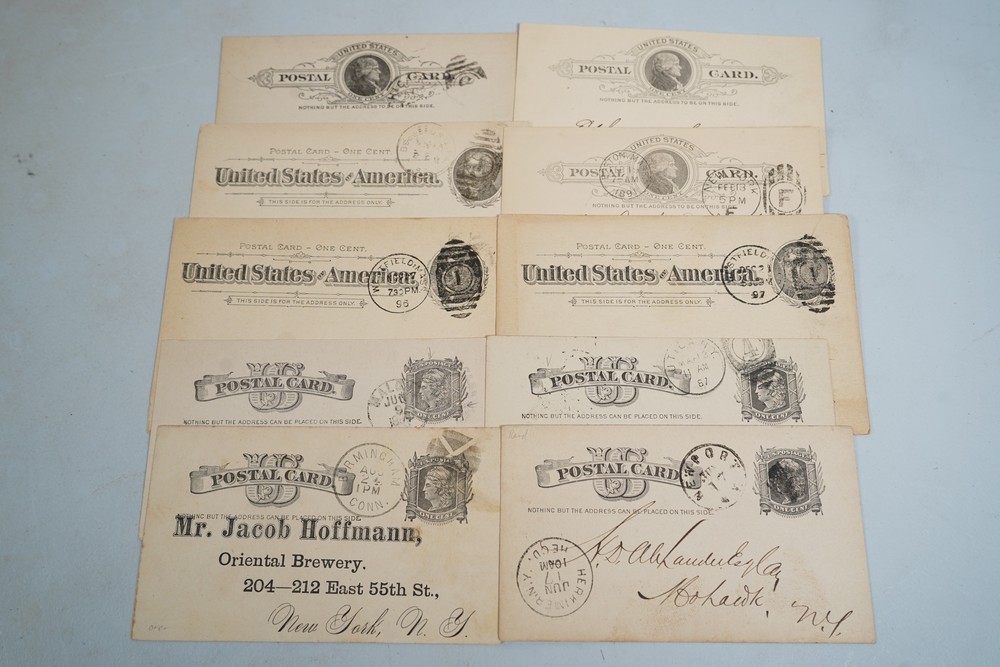 UNITED STATES
POSTAL CARD.
ONE CENT
NOTHING BUT THE ADDRESS TO BE ON THIS SIDE.
UNITED STATES
POSTAL CARD.
ONE CENT
NOTHING BUT THE ADDRESS TO BE ON THIS SIDE.
POSTAL CARD – ONE CENT.
United States of America.
THIS SIDE IS FOR THE ADDRESS ONLY.
UNITED STATES
POSTAL CARD.
NOTHING BUT THE ADDRESS TO BE ON THIS SIDE.
AM
1891
NEW YORK
FEB 13
5 PM
F
POSTAL CARD – ONE CENT.
United States of America.
THIS SIDE IS FOR THE ADDRESS ONLY.
WINFIELD, KAS.
730PM
96
1
POSTAL CARD – ONE CENT.
United States of America.
THIS SIDE IS FOR THE ADDRESS ONLY.
97
1
U S
POSTAL CARD.
NOTHING BUT THE ADDRESS CAN BE PLACED ON THIS SIDE.
ONE CENT
U S
POSTAL CARD.
NOTHING BUT THE ADDRESS CAN BE PLACED ON THIS SIDE.
AM
87
ONE CENT
U S
POSTAL CARD.
NOTHING BUT THE ADDRESS CAN BE PLACED ON THIS SIDE.
BIRMINGHAM
AUG
1 PM
CONN.
ONE CENT
Mr. Jacob Hoffmann,
Oriental Brewery.
204—212 East 55th St.,
New York, N. Y.
U S
POSTAL CARD.
NOTHING BUT THE ADDRESS CAN BE PLACED ON THIS SIDE.
NEWPORT
ONE CENT
HERKIMER, N.Y.
JUN
17
10AM
REC'D.
A. D. Alexander Esq
Mohawk,
N.Y.